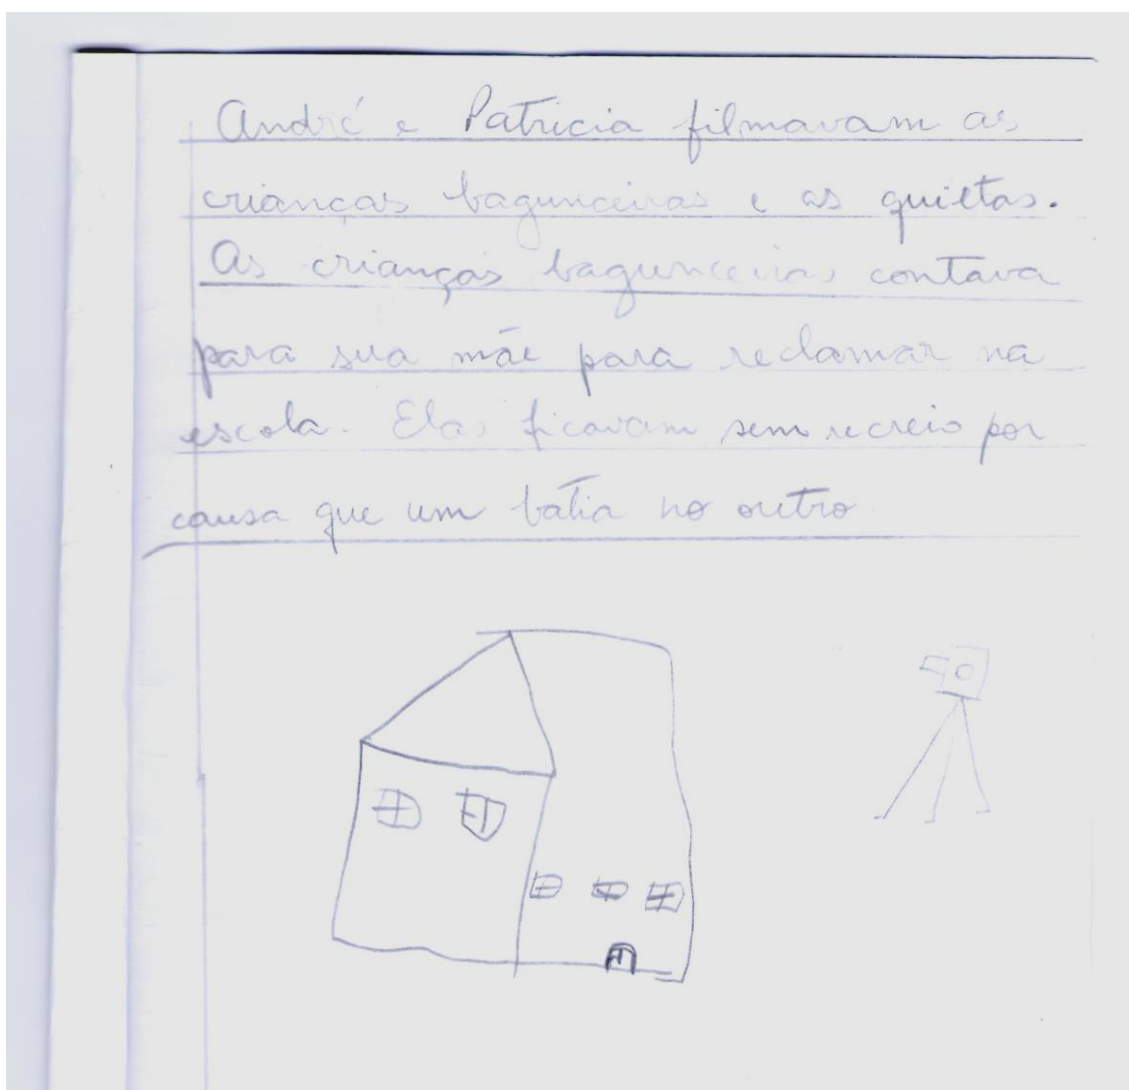 André e Patricia filmavam as
crianças bagunceiras e as quietas.
As crianças bagunceiras contava
para sua mãe para reclamar na
escola. Elas ficavam sem recreio por
causa que um batia no outro